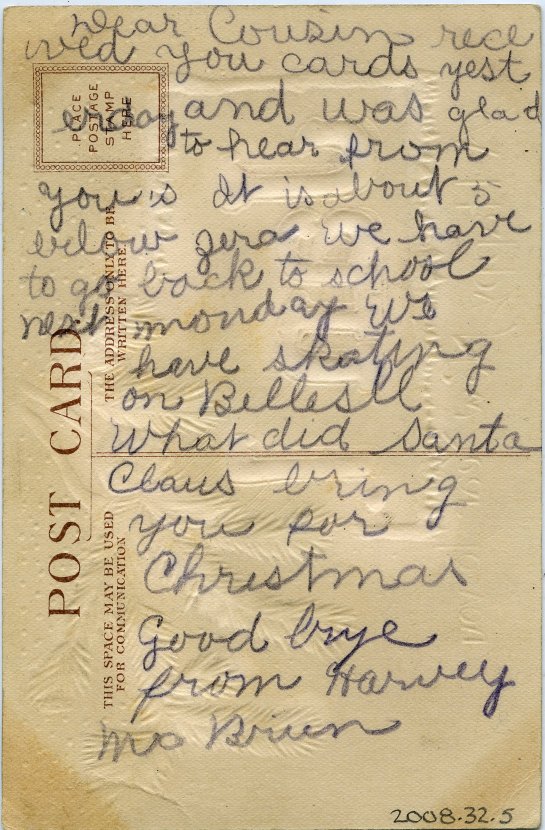 Dear Cousin rece
ived you cards yest
erday and was glad
to hear from
you is It is about 5
below zera We have
to go back to school
next monday We
have skating
on
What did Santa
Claus bring
you for
Christmas
Good brye
from Harvey
Mc Brien
PLACE
POSTAGE
STAMP
HERE
POST CARD.
THE ADDRESS ONLY TO BE
WRITTEN HERE
THIS SPACE MAY BE USED
FOR COMMUNICATION
2008.32.5